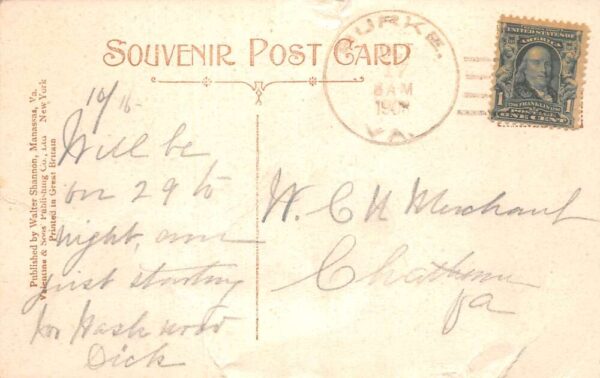 SOUVENIR POST CARD
BURKE,
17
8 AM
190
VA.
UNITED STATES OF
AMERICA
1 FRANKLIN 1
POSTAGE
ONE CENT
Published by Walter Shannon, Manassas, Va.
Valentine & Sons Publishing Co., Ltd New York
Printed in Great Britain
10/16
Will be
on 29 to
night, am
just starting
for Wash now
Dick
W. C. N Merchant
Chatham
Va